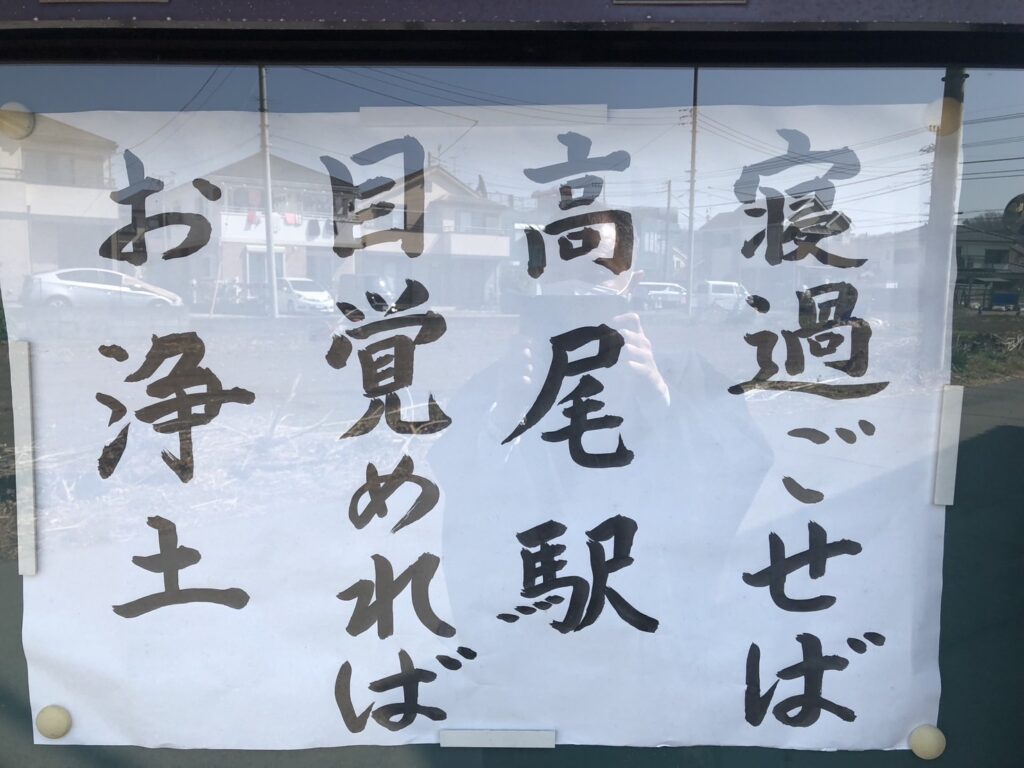 寝過ごせば
高尾駅
目覚めれば
お浄土